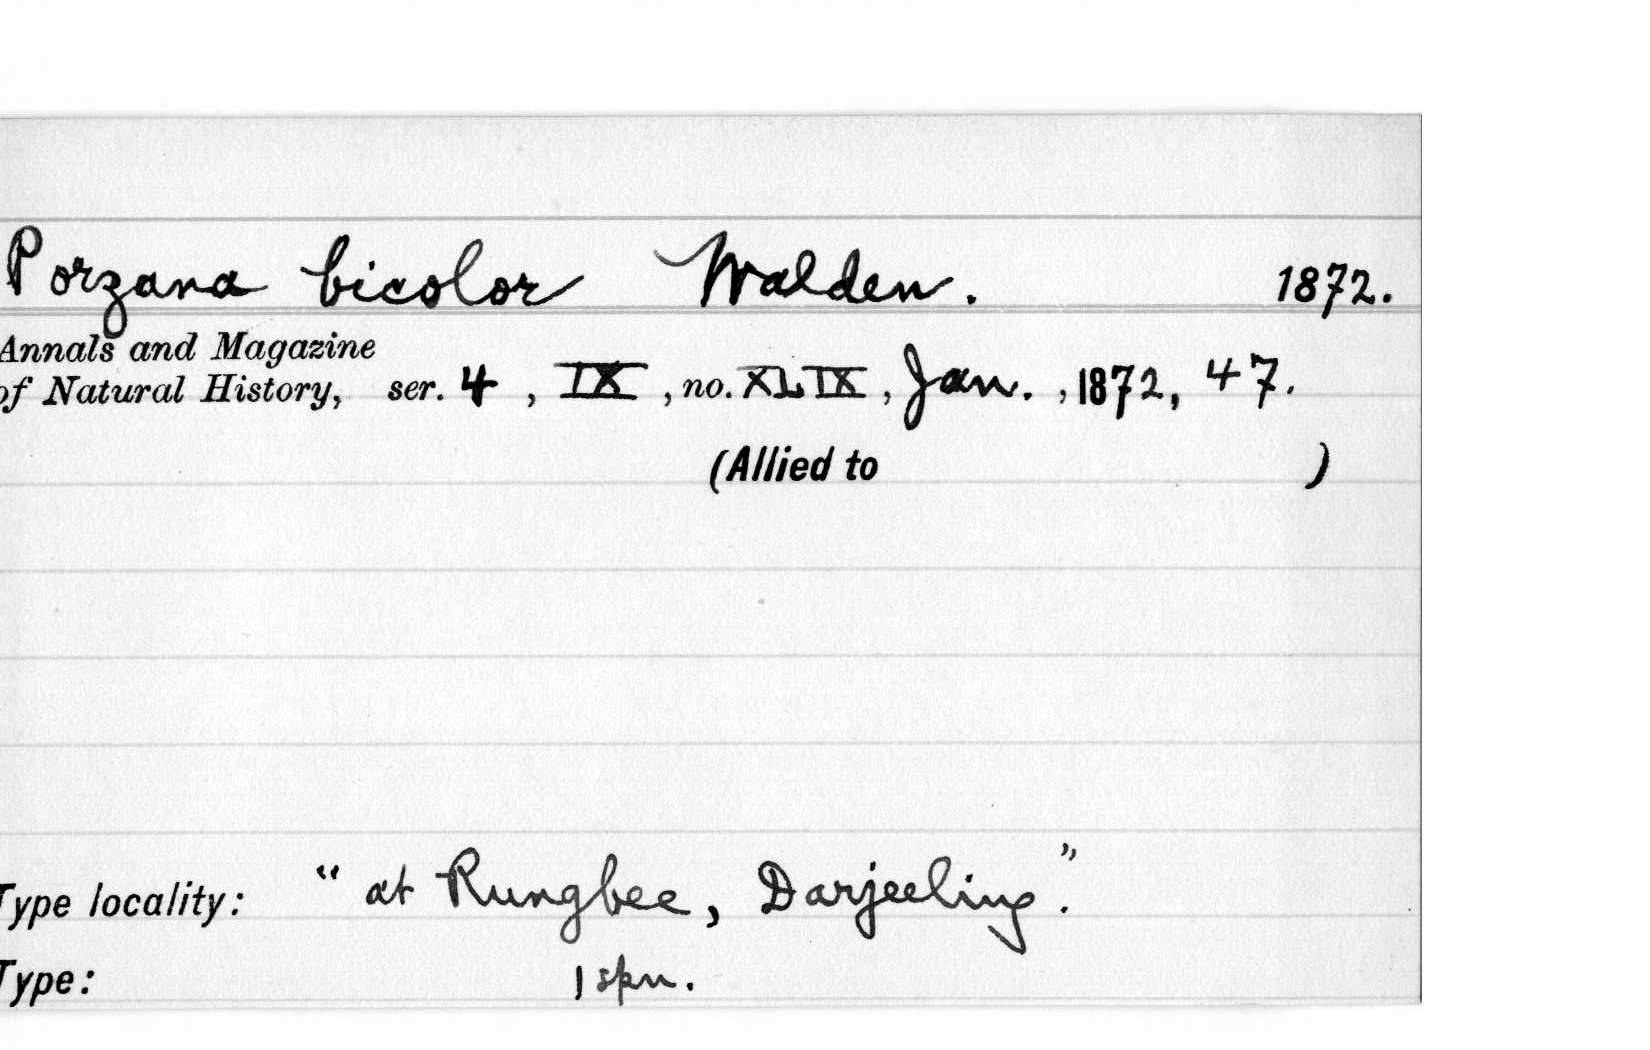 Porzana bicolor Walden. 1872.
Annals and Magazine
of Natural History, ser. 4, IX, no. XLIX, Jan., 1872, 47.
(Allied to )
Type locality: "at Rungbee, Darjeeling."
Type: 1 spn.